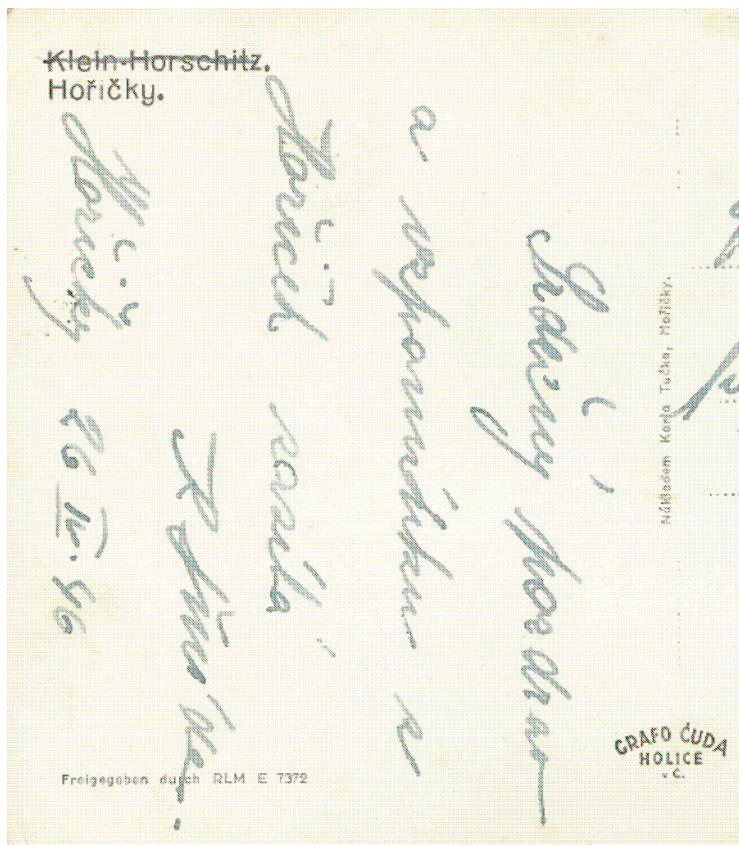 Klein-Horschitz.
Hořičky.
Srdečný pozdrav
a vzpomínku z
Hořiček zasílá
Hořičky 26 IV. 46
Nákladem Karla Tučka, Hořičky.
GRAFO ČUDA
HOLICE
v Č.
Freigegeben durch RLM E 7372